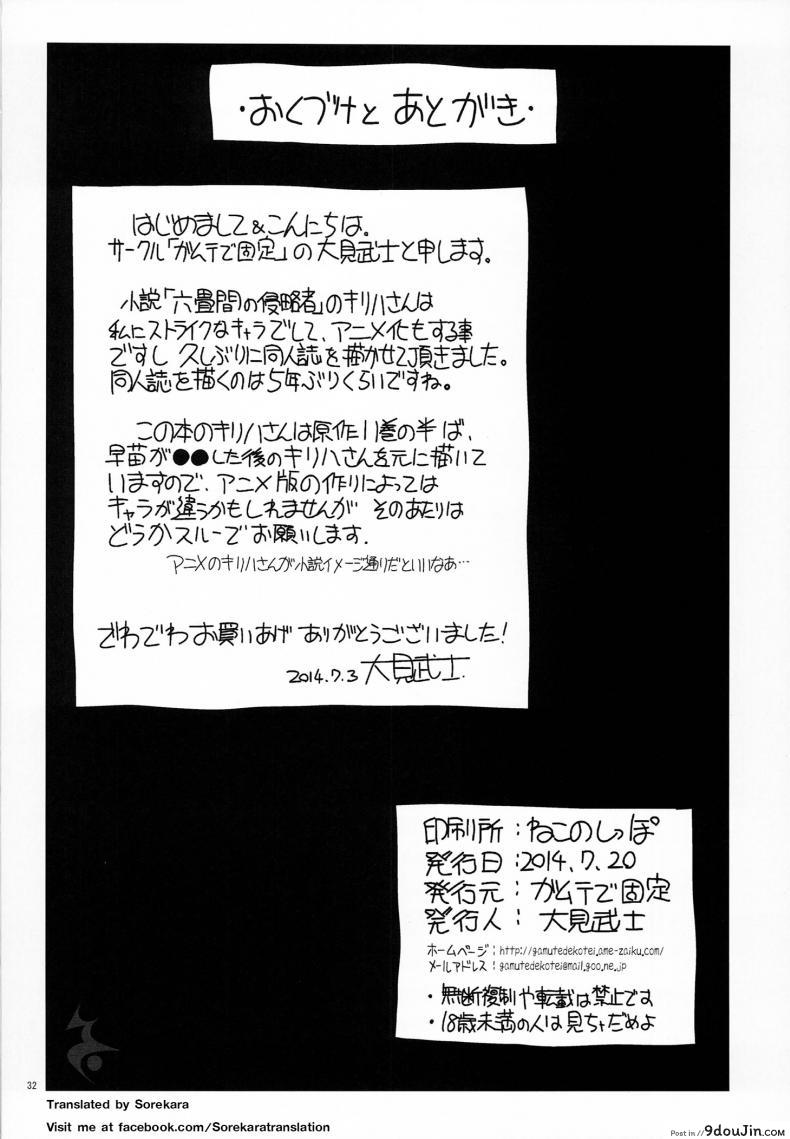 ・おくづけと あとがき・
はじめまして&こんにちは。
サークル「ガムテで固定」の大見武士と申します。
小説「六畳間の侵略者」のキリハさんは
私にストライクなキャラでして、アニメ化もする事
ですし 久しぶりに同人誌を描かせて頂きました。
同人誌を描くのは5年ぶりくらいですね。
この本のキリハさんは原作11巻の半ば、
早苗が●●した後のキリハさんを元に描いて
いますので、アニメ版の作りによっては
キャラが違うかもしれませんが そのあたりは
どうかスルーでお願いします.
アニメのキリハさんが小説イメージ通りだといいなあ…
でわでわお買いあげ ありがとうございました!
2014.7.3 大見武士.
印刷所:ねこのしっぽ
発行日:2014.7.20
発行元:ガムテで固定
発行人:大見武士
ホームページ:http://gamutedekotei.ame-zaiku.com/
メールアドレス:gamutedekotei@mail.goo.ne.jp
・無断複制や転載は禁止です
・18歳未満の人は見ちゃだめよ
32
Translated by Sorekara
Visit me at facebook.com/Sorekaratranslation
Post in // 9douJin.com